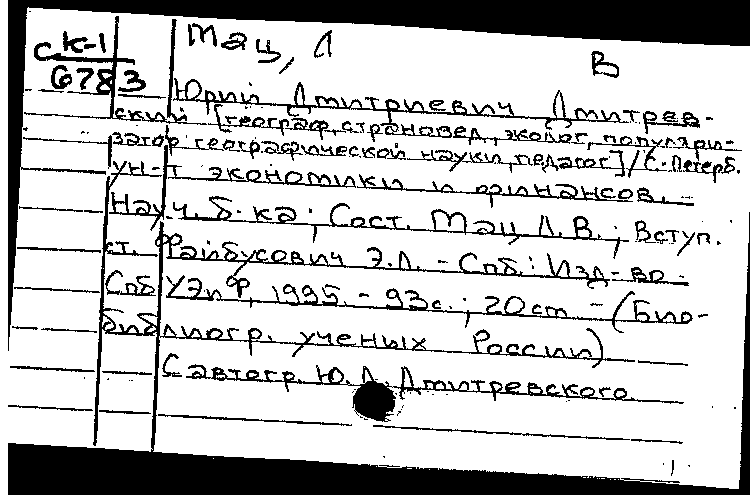 Мац, Л
В
СК-1
6783
Юрий Дмитриевич Дмитрев-
ский [географ, страновед, эколог, популяри-
затор географической науки, педагог] / С.-Петерб.
ун-т экономики и финансов. –
Науч. б-ка; Сост. Мац Л.В.; Вступ.
ст. Файбусович Э.Л. – Спб.: Изд-во
Спб УЭиФ, 1995. – 93с.; 20 cm – (Био-
библиогр. ученых России)
С автогр. Ю.Д. Дмитревского